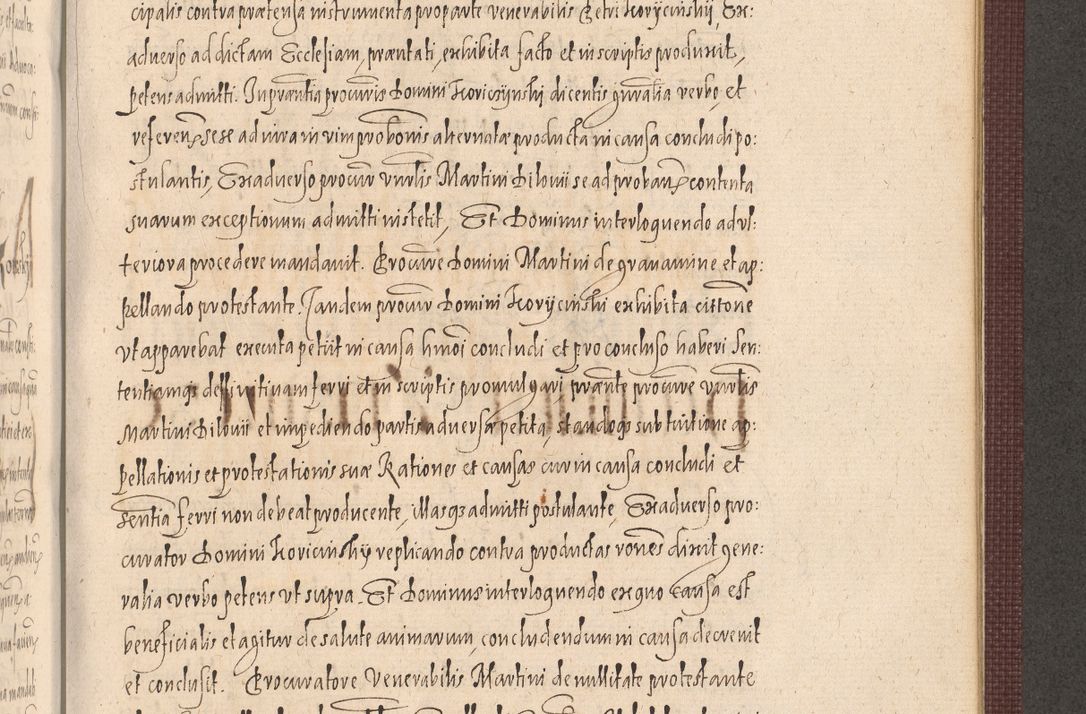 cipalis contra prætensa instrumenta pro parte venerabilis Petri Koryciński, Ex:
adverso ad dictam Ecclesiam, præntati, exhibita facto et in scriptis produxit,
petens admitti. In præntia procuris Domini Koriczinski dicentis gnralia verbo, et
referen sese ad iura in vim probonis alternatæ producta in causa concludi po:
stulantis, Ex adverso procur vnrlis Martini Dilowii se ad proban contenta
suarum exceptionum admitti institit, Et Dominus interloquendo ad vl:
teriora procedere mandavit. Procure Domini Martini de gravamine et ap:
pellando protestante. Tandem procur Domini Korycinski exhibita cittone
vt apparebat executa petiit in causa hmoi concludi et pro concluso haberi Sen:
tentiamq deffinitivam ferri et in scriptis promulgari, prænte procure vnrlis
Martini Dilowii et impediendo partis adversæ petita, standoq sub tuitione ap:
pellationis et protestationis suæ Rationes et causas cur in causa concludi et
sentia ferri non debeat producente, illasq admitti postulante, Ex adverso pro:
curator Domini Koricinsky replicando contra productas rones dixit gene:
ralia verbo petens vt supra. Et Dominus interloquendo ex quo causa est
beneficialis et agitur de salute animarum, concludendum in causa decrevit
et conclusit. Procuratore Venerabilis Martini de nullitate protestante